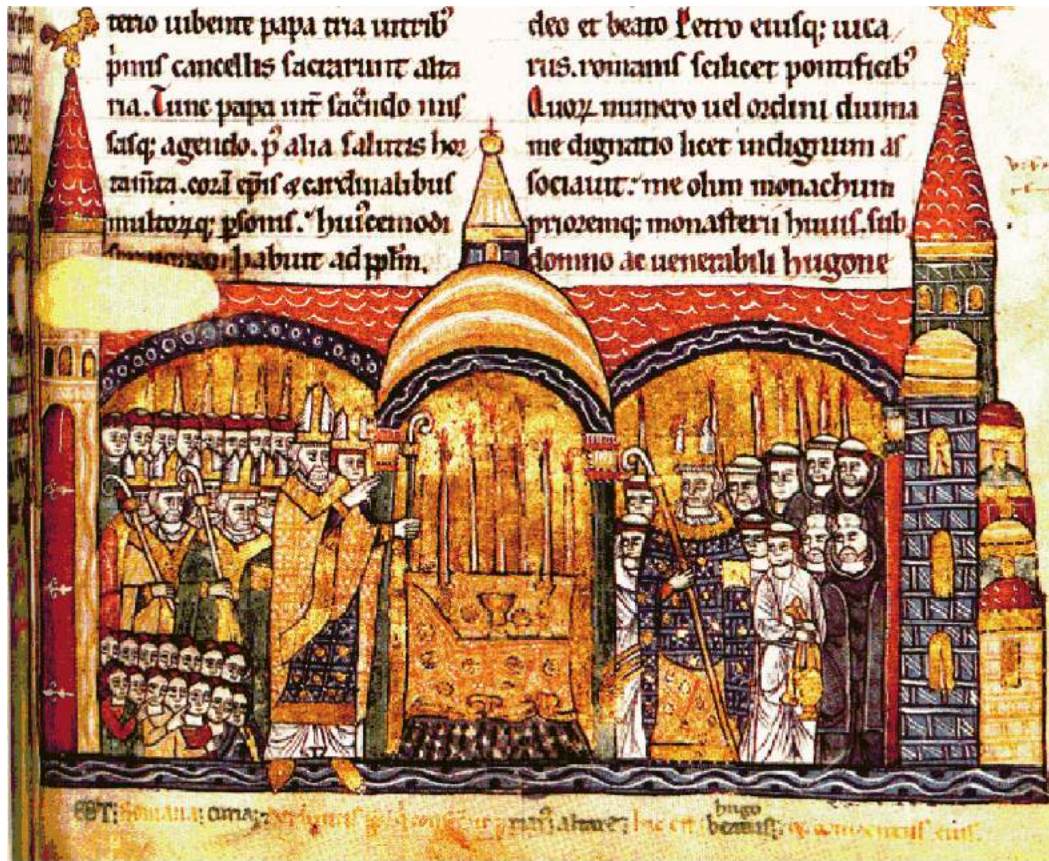 terio iubente papa tria in trib᾽
p̄mis cancellis sacrarunt alta
ria. Tunc papa int̄ sac̄ndo mis
sasq; agendo. p᾽ alia salutis hor
tam̄ta. corā ep̄is & cardinalibus
multoꝝq; p̱sonis. huiucemodi
habuit ad pp̄lm.
deo et beato Petro eiusq; uica
riis. romanis scilicet pontificib᾽
Quoꝝ numero uel ordini diuina
me dignatio licet indignum as
sociauit. me olim monachum
prioremq; monasterii huius. sub
domno ac uenerabili hugone
hugo
EST; Romana; curia; altare; hec est; conuentus eius.